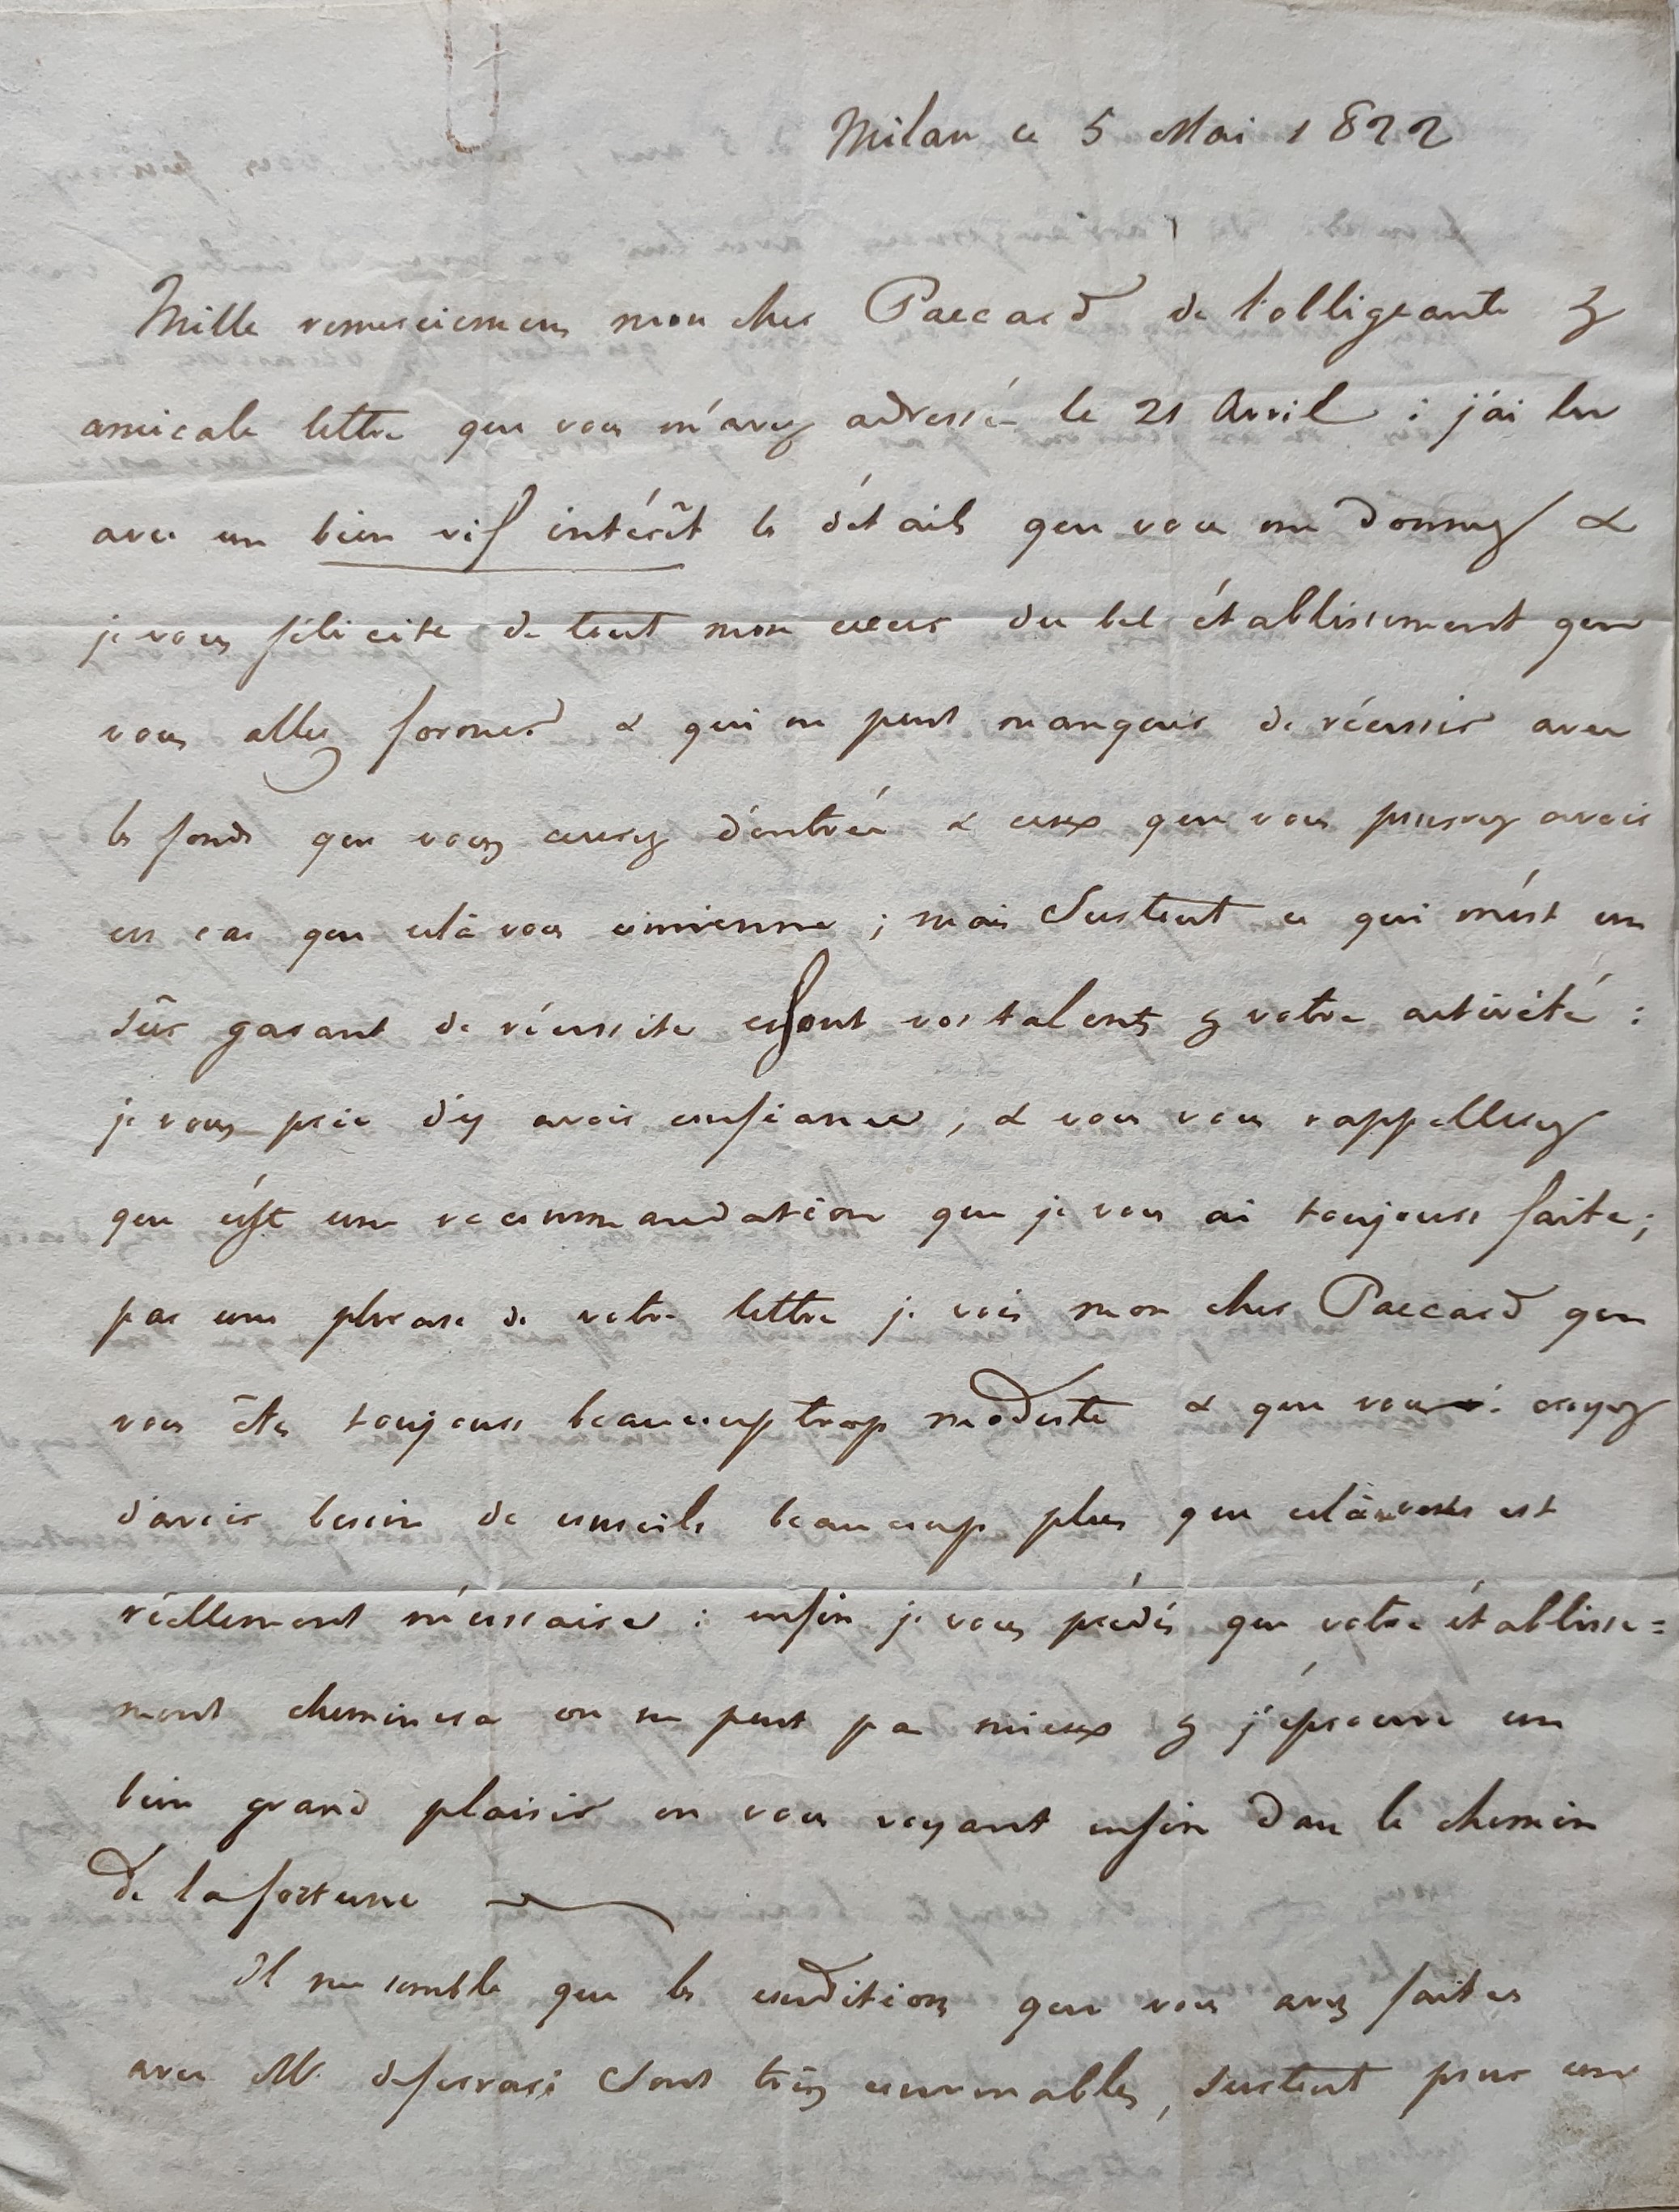 Milan ce 5 Mai 1822
Mille remerciemens mon cher Paccard de l'obligeante &
amicale lettre que vous m'avez adressée le 21 Avril : j'ai lu
avec un bien vif intérêt les détails que vous me donnez &
je vous félicite de tout mon cœur du bel établissement que
vous allez former & qui ne peut manquer de réussir avec
les fonds que vous aurez d'entrée & ceux que vous pourrez avoir
en cas que celà vous convienne ; mais Surtout ce qui m'est un
sûr garant de réussite ce sont vos talents & votre activité :
je vous prie d'y avoir confiance, & vous vous rappellerez
que c'est une recommandation que je vous ai toujours faite ;
par une phrase de votre lettre je vois mon cher Paccard que
vous êtes toujours beaucoup trop modeste & que vous croyez
d'avoir besoin de conseils beaucoup plus que celà vous est
réellement nécessaire : enfin je vous prédis que votre établisse=
ment cheminera on ne peut pas mieux & j'éprouve un
bien grand plaisir en vous voyant enfin dans le chemin
de la fortune
Il me semble que les conditions que vous avez faites
avec Mr. Sont très convenables, surtout pour une